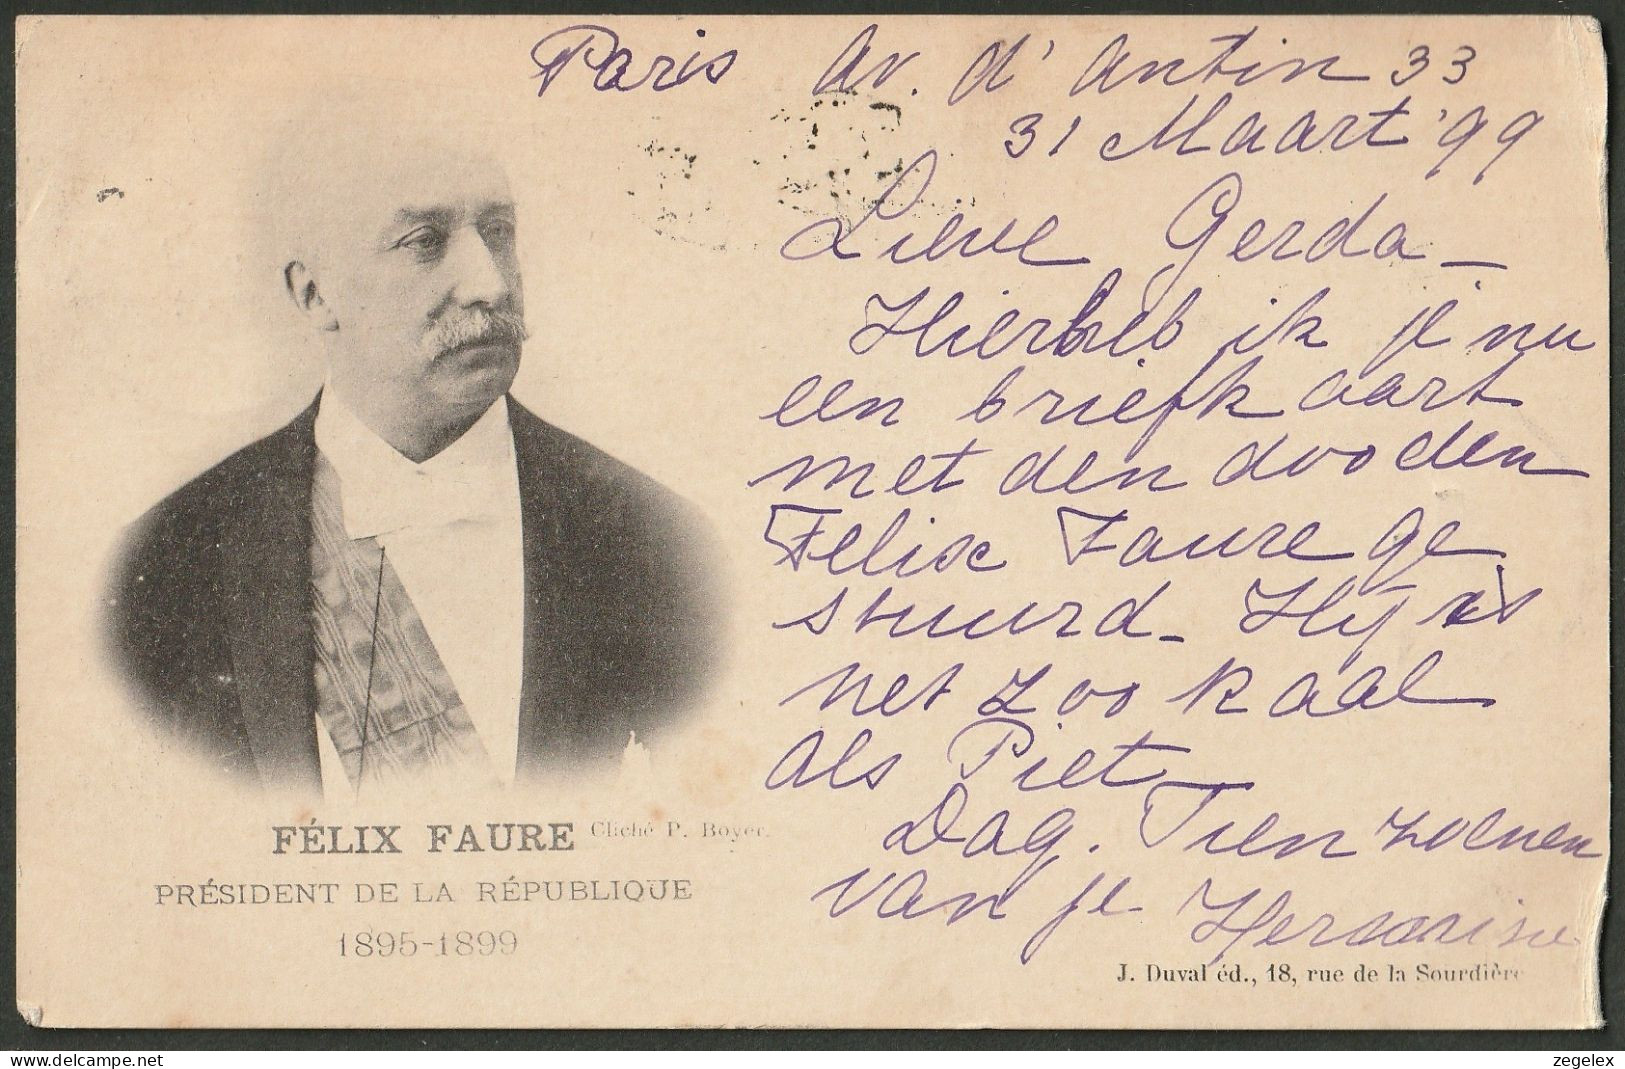 Paris av. d' Antin 33
31 Maart '99
Lieve Gerda _
Hier heb ik je nu
een briefkaart
met den dooden
Felix Faure ge
stuurd _ Hij is
net zoo kaal
als Piet _
Dag. Tien zoenen
van je Hermine
FÉLIX FAURE Cliché P. Boyer.
PRÉSIDENT DE LA RÉPUBLIQUE
1895-1899
J. Duval éd., 18, rue de la Sourdière
zegelex